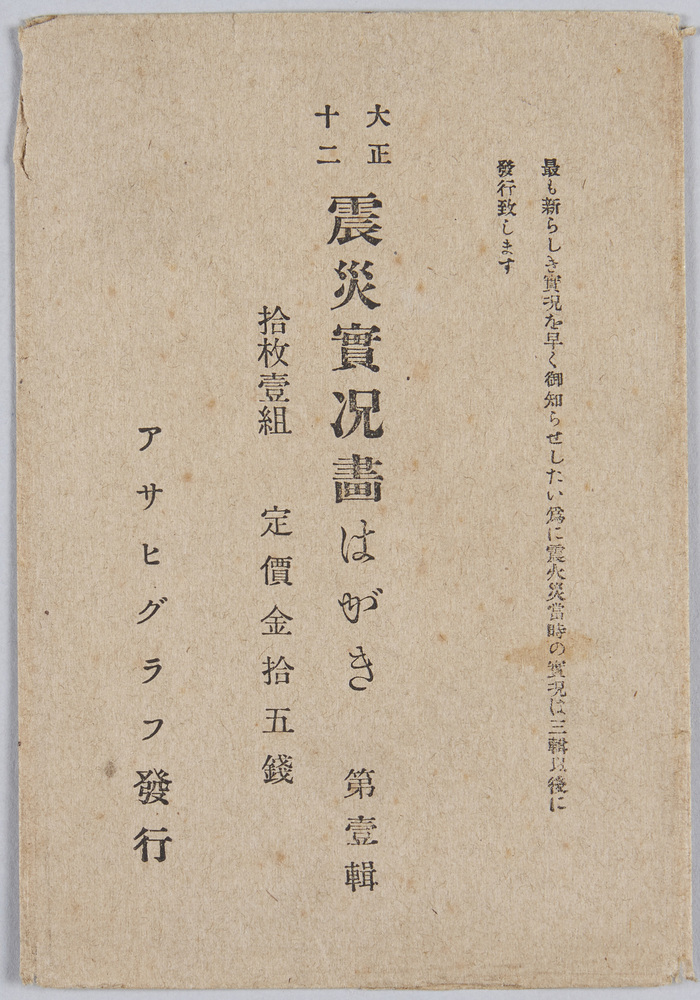 最も新らしき實況を早く御知らせしたい爲に震火災當時の實況は三輯以後に
發行致します
大正
十二
震災實况畫はがき　第壹輯
拾枚壹組　定價金拾五錢
アサヒグラフ發行